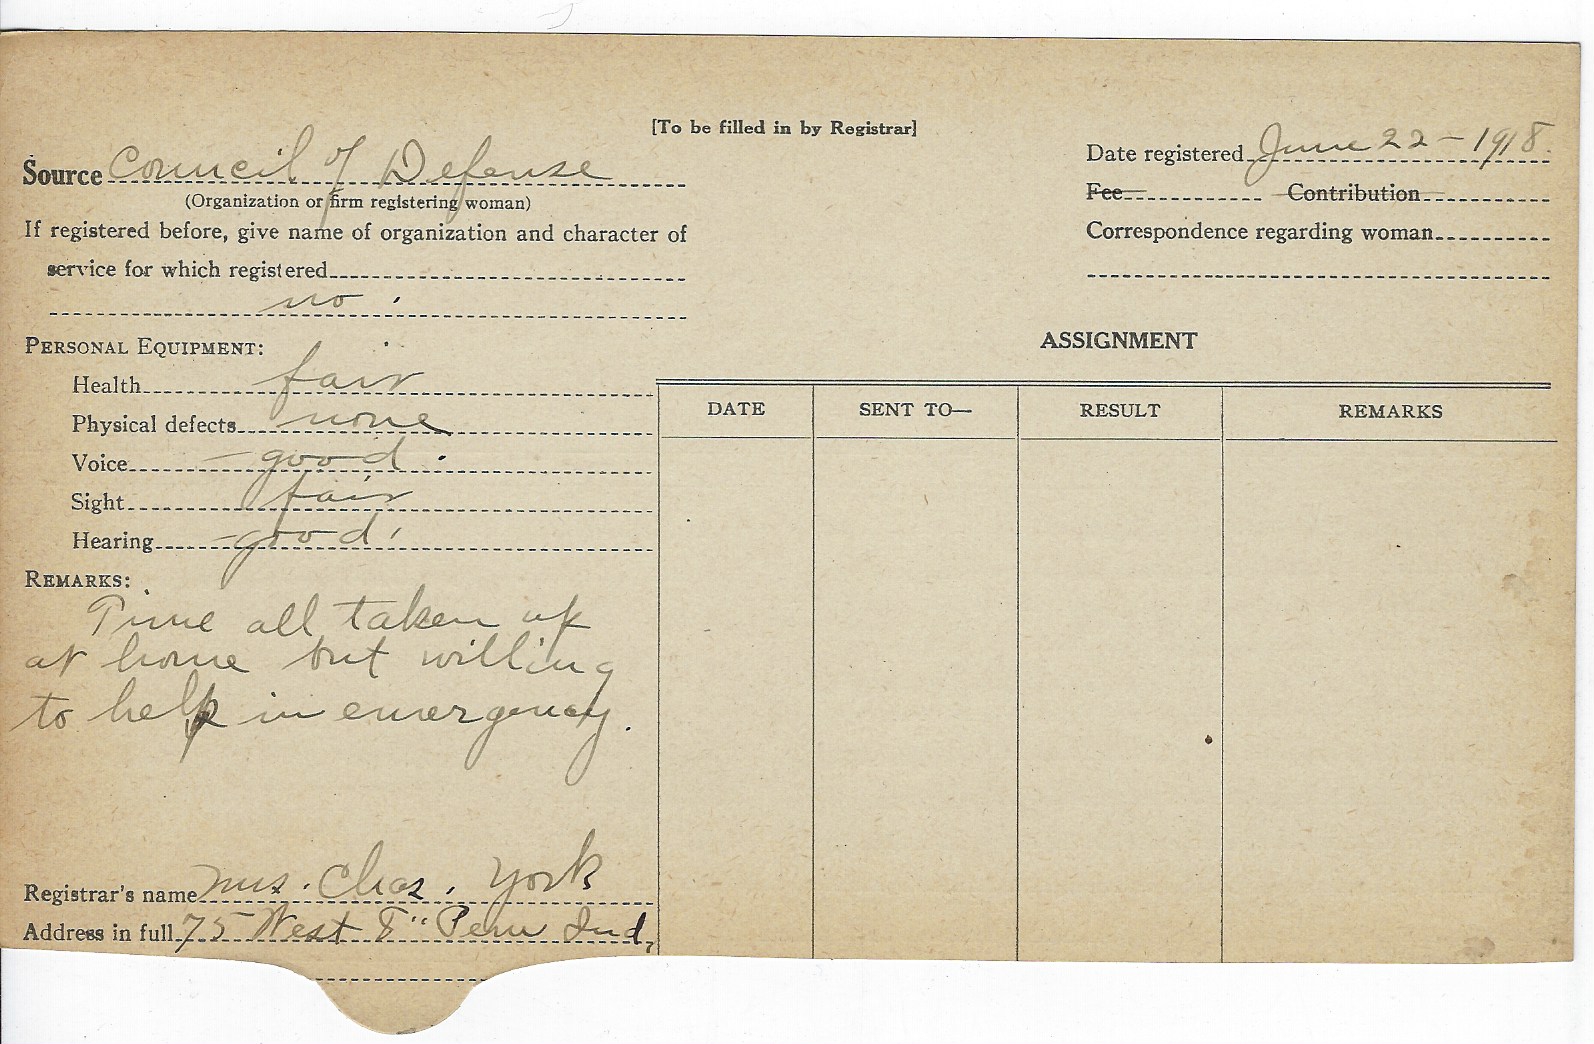 [To be filled in by Registrar]
Source Council of Defense
(Organization or firm registering woman)
If registered before, give name of organization and character of
service for which registered
no.
Date registered June 22 - 1918.
Fee Contribution
Correspondence regarding woman
PERSONAL EQUIPMENT:
Health fair
Physical defects none
Voice good.
Sight fair
Hearing good.
REMARKS:
Time all taken up
at home but willing
to help in emergency.
Registrar's name Mrs. Chas. York
Address in full 75 West 8" Peru Ind.
ASSIGNMENT
DATE SENT TO— RESULT REMARKS